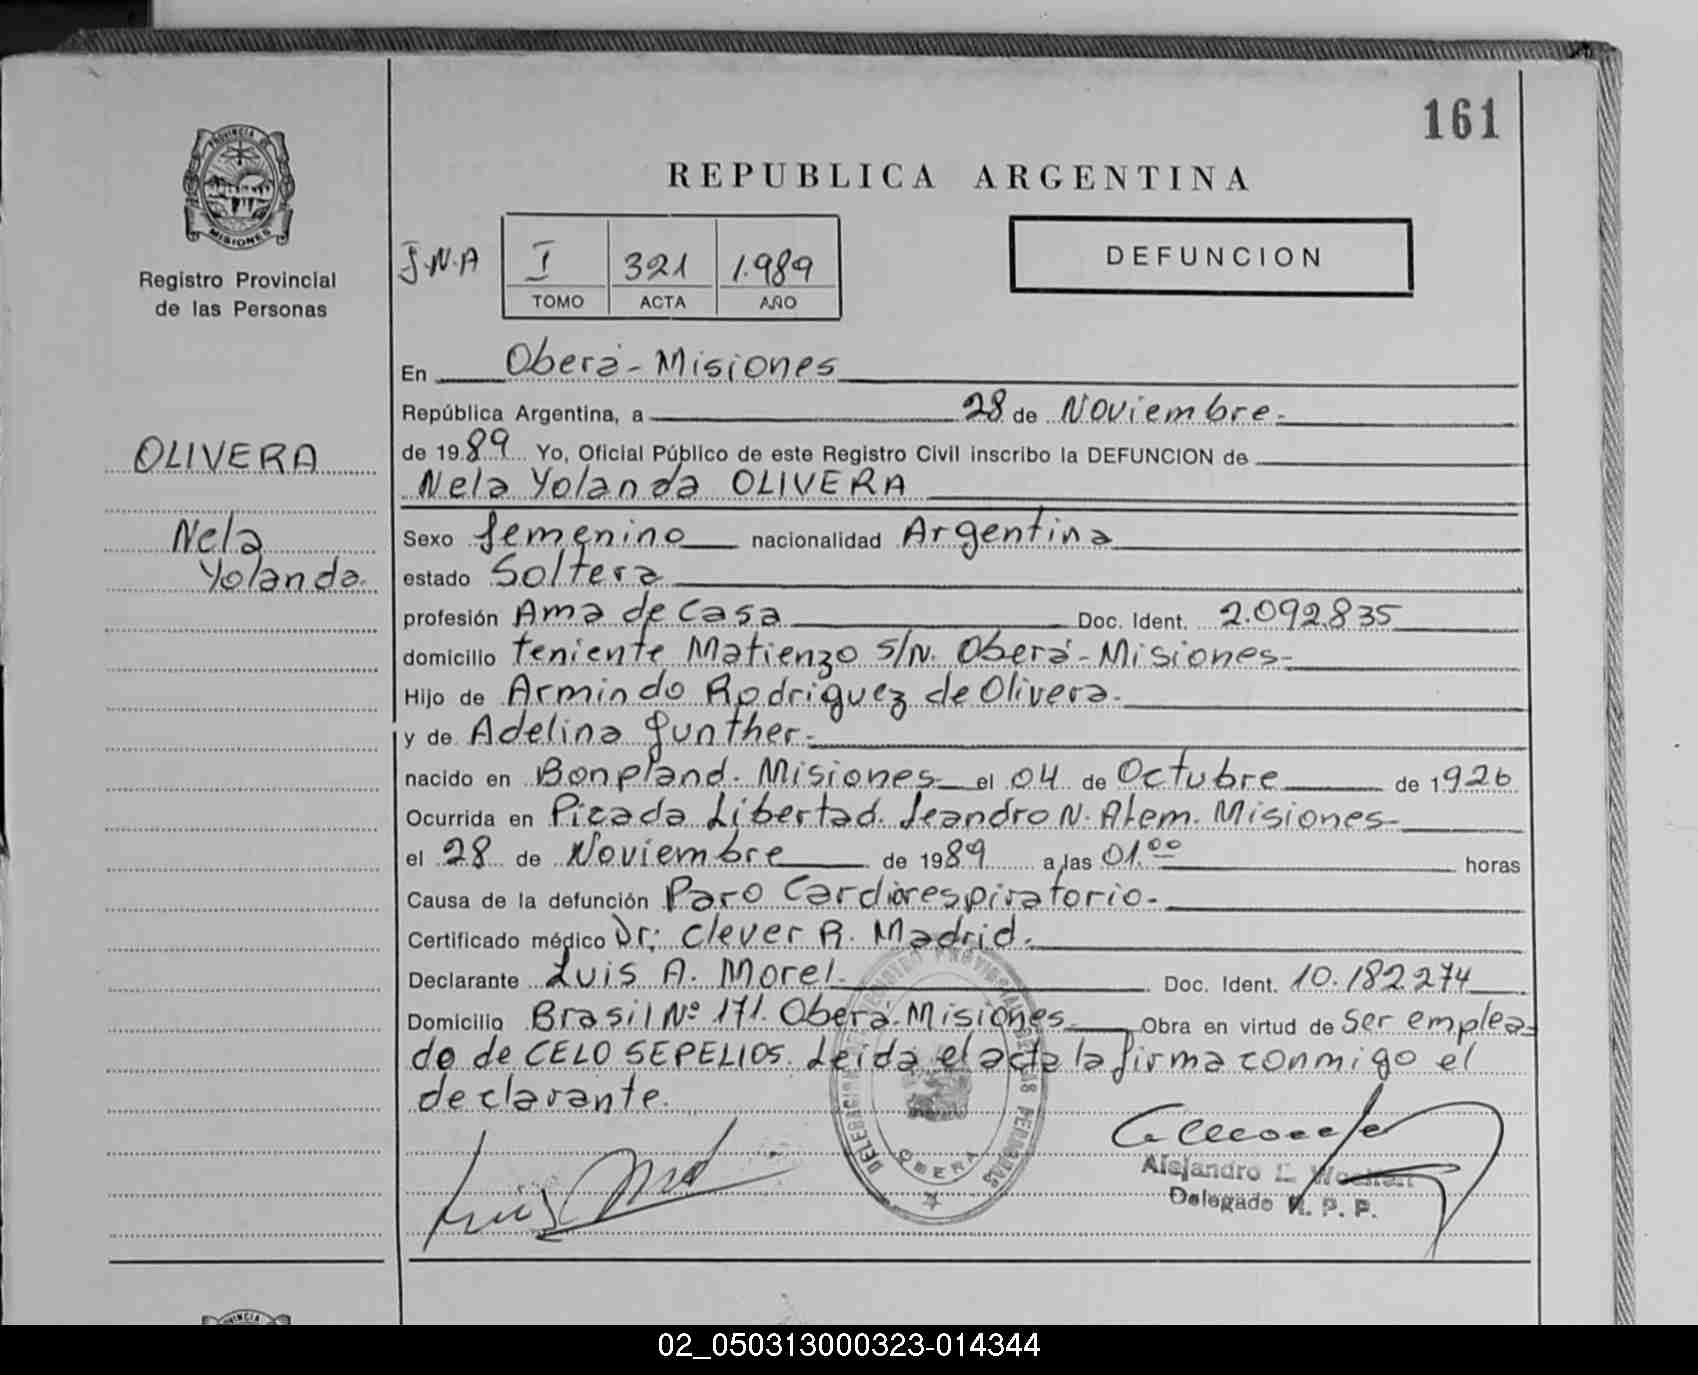 161
PROVINCIA DE
MISIONES
Registro Provincial
de las Personas
REPUBLICA ARGENTINA
J.N.A
I 321 1.989
TOMO ACTA AÑO
DEFUNCION
OLIVERA
Nela
Yolanda.
En Oberá - Misiones
República Argentina, a 28 de Noviembre.
de 1989 Yo, Oficial Público de este Registro Civil inscribo la DEFUNCION de
Nela Yolanda OLIVERA
Sexo femenino nacionalidad Argentina
estado Soltera
profesión Ama de Casa Doc. Ident. 2.092.835
domicilio teniente Matienzo S/N. Oberá - Misiones-
Hijo de Armindo Rodriguez de Olivera.
y de Adelina gunther.
nacido en Bonpland. Misiones el 04 de Octubre de 1926
Ocurrida en Picada Libertad. Leandro N. Alem. Misiones
el 28 de Noviembre de 1989 a las 01.00 horas
Causa de la defunción Paro Cardiorespiratorio.
Certificado médico Dr; Clever R. Madrid.
Declarante Luis A. Morel. Doc. Ident. 10.182.274
Domicilio Brasil Nº 171. Oberá. Misiones Obra en virtud de ser emplea
do de CELO SEPELIOS. Leida el acta la firma conmigo el
declarante.
OBERA
Alejandro
Delegado R. P. P.
02_050313000323-014344